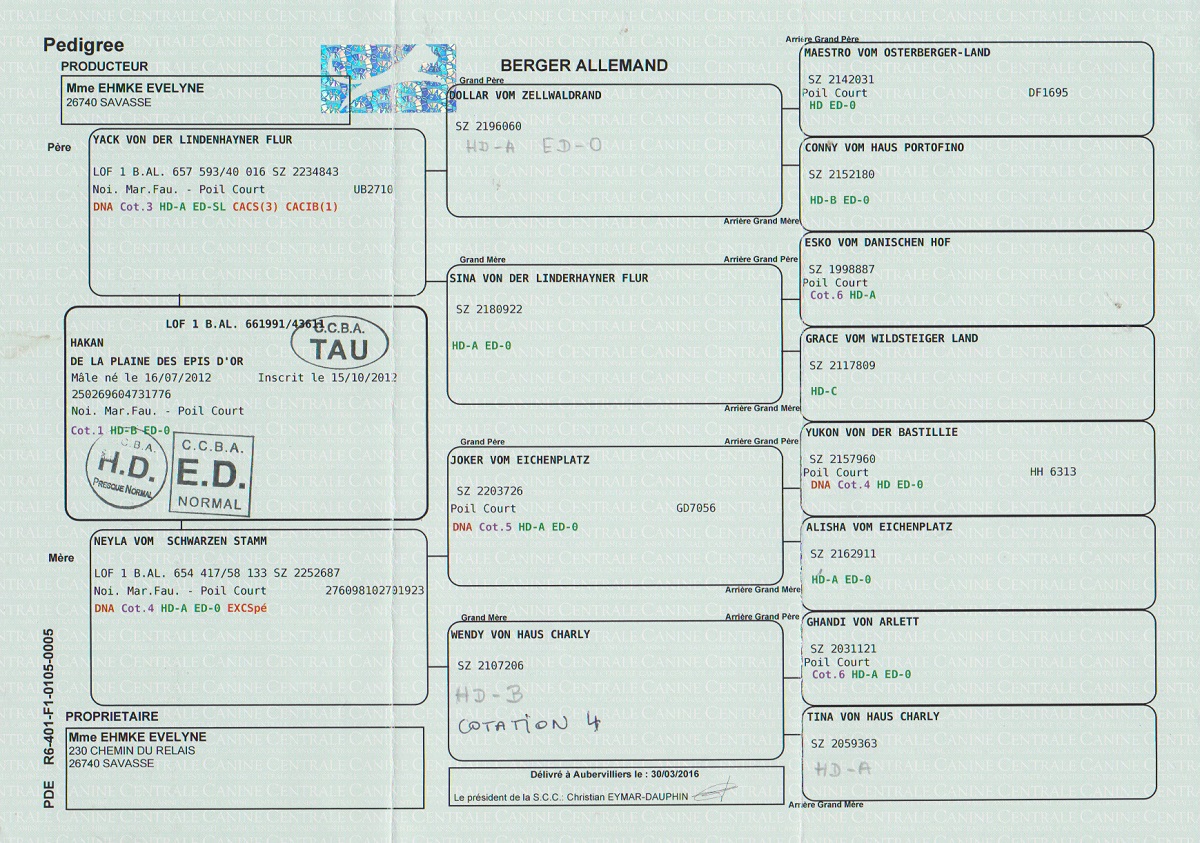 Pedigree
PRODUCTEUR
Mme EHMKE EVELYNE
26740 SAVASSE
BERGER ALLEMAND
Père
YACK VON DER LINDENHAYNER FLUR
LOF 1 B.AL. 657 593/40 016 SZ 2234843
Noi. Mar.Fau. - Poil Court UB2710
DNA Cot.3 HD-A ED-SL CACS(3) CACIB(1)
LOF 1 B.AL. 661991/43611
HAKAN
DE LA PLAINE DES EPIS D'OR
Mâle né le 16/07/2012 Inscrit le 15/10/2012
250269604731776
Noi. Mar.Fau. - Poil Court
Cot.1 HD-B ED-0
C.C.B.A.
TAU
C.B.A.
H.D.
PRESQUE NORMAL
C.C.B.A.
E.D.
NORMAL
Mère
NEYLA VOM SCHWARZEN STAMM
LOF 1 B.AL. 654 417/58 133 SZ 2252687
Noi. Mar.Fau. - Poil Court 276098102701923
DNA Cot.4 HD-A ED-0 EXCSpé
PROPRIETAIRE
Mme EHMKE EVELYNE
230 CHEMIN DU RELAIS
26740 SAVASSE
PDE R6-401-F1-0105-0005
Grand Père
DOLLAR VOM ZELLWALDRAND
SZ 2196060
HD-A ED-0
Grand Mère
SINA VON DER LINDERHAYNER FLUR
SZ 2180922
HD-A ED-0
Grand Père
JOKER VOM EICHENPLATZ
SZ 2203726
Poil Court GD7056
DNA Cot.5 HD-A ED-0
Grand Mère
WENDY VON HAUS CHARLY
SZ 2107206
HD-B
COTATION 4
Délivré à Aubervilliers le : 30/03/2016
Le président de la S.C.C.: Christian EYMAR-DAUPHIN
Arrière Grand Père
MAESTRO VOM OSTERBERGER-LAND
SZ 2142031
Poil Court DF1695
HD ED-0
CONNY VOM HAUS PORTOFINO
SZ 2152180
HD-B ED-0
Arrière Grand Mère
Arrière Grand Père
ESKO VOM DANISCHEN HOF
SZ 1998887
Poil Court
Cot.6 HD-A
GRACE VOM WILDSTEIGER LAND
SZ 2117809
HD-C
Arrière Grand Mère
Arrière Grand Père
YUKON VON DER BASTILLIE
SZ 2157960
Poil Court HH 6313
DNA Cot.4 HD ED-0
ALISHA VOM EICHENPLATZ
SZ 2162911
HD-A ED-0
Arrière Grand Mère
Arrière Grand Père
GHANDI VON ARLETT
SZ 2031121
Poil Court
Cot.6 HD-A ED-0
TINA VON HAUS CHARLY
SZ 2059363
HD-A
Arrière Grand Mère